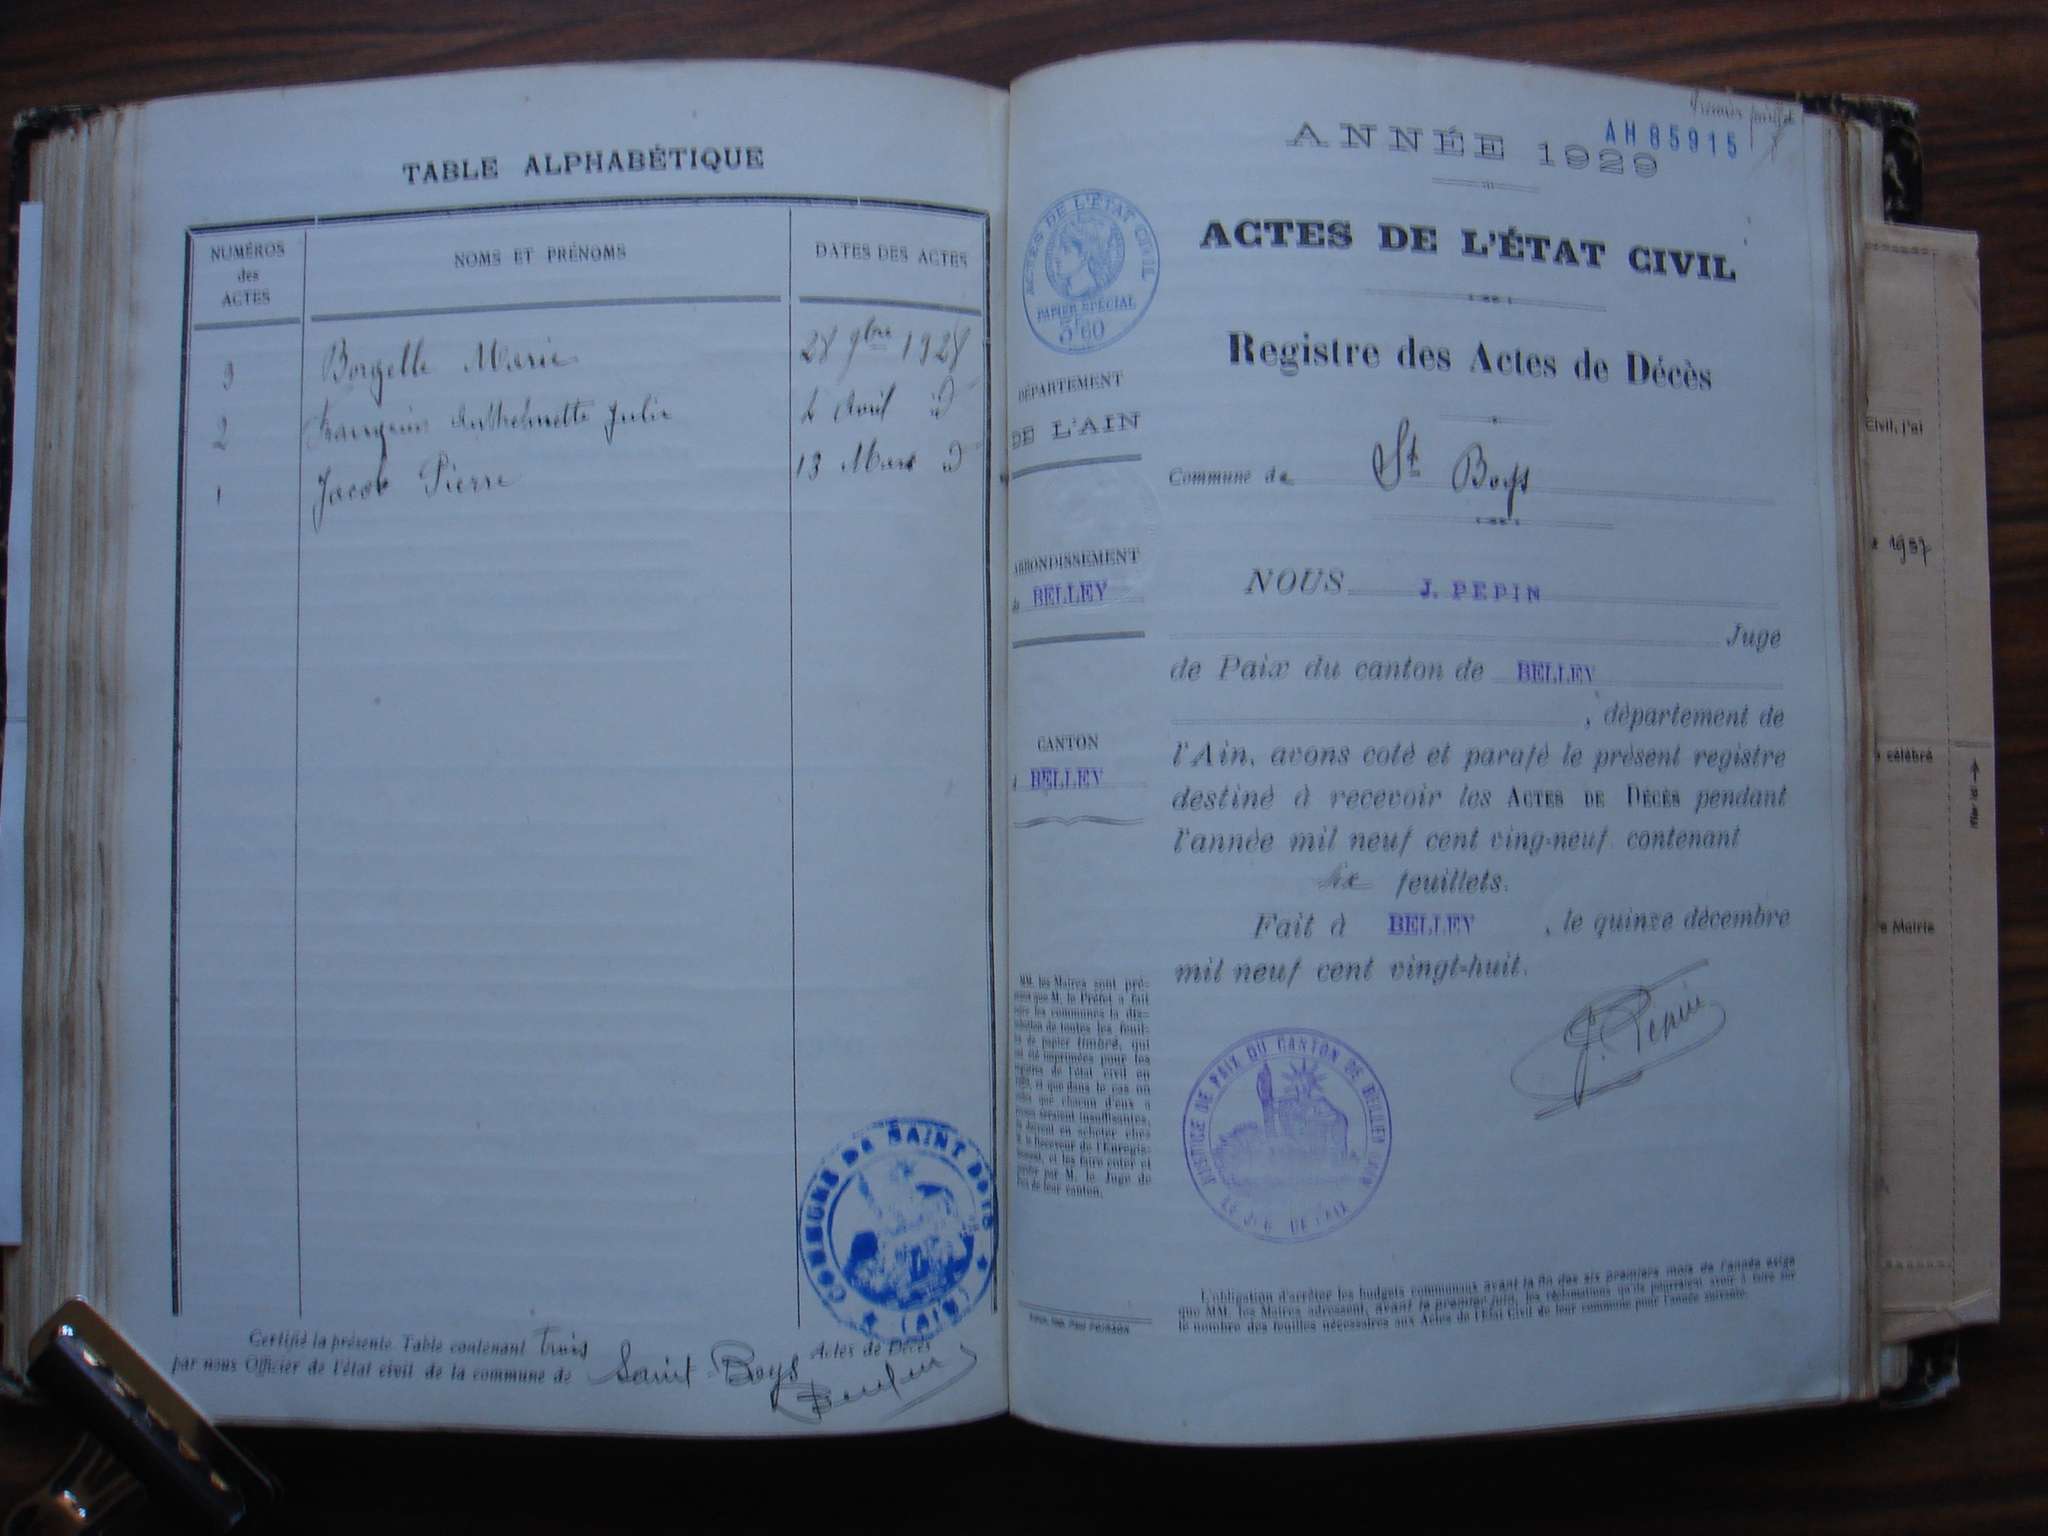 TABLE ALPHABÉTIQUE
NUMÉROS
des
ACTES
NOMS ET PRÉNOMS
DATES DES ACTES
3 Borgelle Marie 28 9bre 1928
2 Anthelmette Julie 2 Avril d
1 Jacob Pierre 13 Mars d
COMMUNE DE SAINT BOYS
(AIN)
Certifié la présente Table contenant trois Actes de Décès
par nous Officier de l'état civil de la commune de Saint Boys
Premier feuillet
AH 85915
ANNÉE 1929
ACTES DE L'ÉTAT CIVIL
PAPIER SPÉCIAL
3f60
ACTES DE L'ÉTAT CIVIL
Registre des Actes de Décès
DÉPARTEMENT
DE L'AIN
Commune de St Boys
ARRONDISSEMENT
de BELLEY
CANTON
BELLEY
NOUS J. PEPIN
Juge
de Paix du canton de BELLEY
, département de
l'Ain, avons coté et parafé le présent registre
destiné à recevoir les ACTES DE DÉCÈS pendant
l'année mil neuf cent ving-neuf contenant
six feuillets.
Fait à BELLEY, le quinze décembre
mil neuf cent vingt-huit.
J. Pepin
JUSTICE DE PAIX DU CANTON DE BELLEY
LE JUGE DE PAIX
MM. les Maires sont pré-
que M. le Préfet a fait
les communes la dis-
de toutes les feuil-
de papier timbré, qui
été imprimées pour les
de l'état civil en
et que dans le cas où
que chacun d'eux a
seraient insuffisantes,
en acheter chez
le Receveur de l'Enregis-
et les faire coter et
par M. le Juge de
de leur canton.
L'obligation d'arrêter les budgets communaux avant la fin des six premiers mois de l'année exige
que MM. les Maires adressent, avant le premier juin, les réclamations qu'ils pourraient avoir à faire sur
le nombre des feuilles nécessaires aux Actes de l'Etat Civil de leur commune pour l'année suivante.
Civil, j'ai
1957
célébré
Mairie